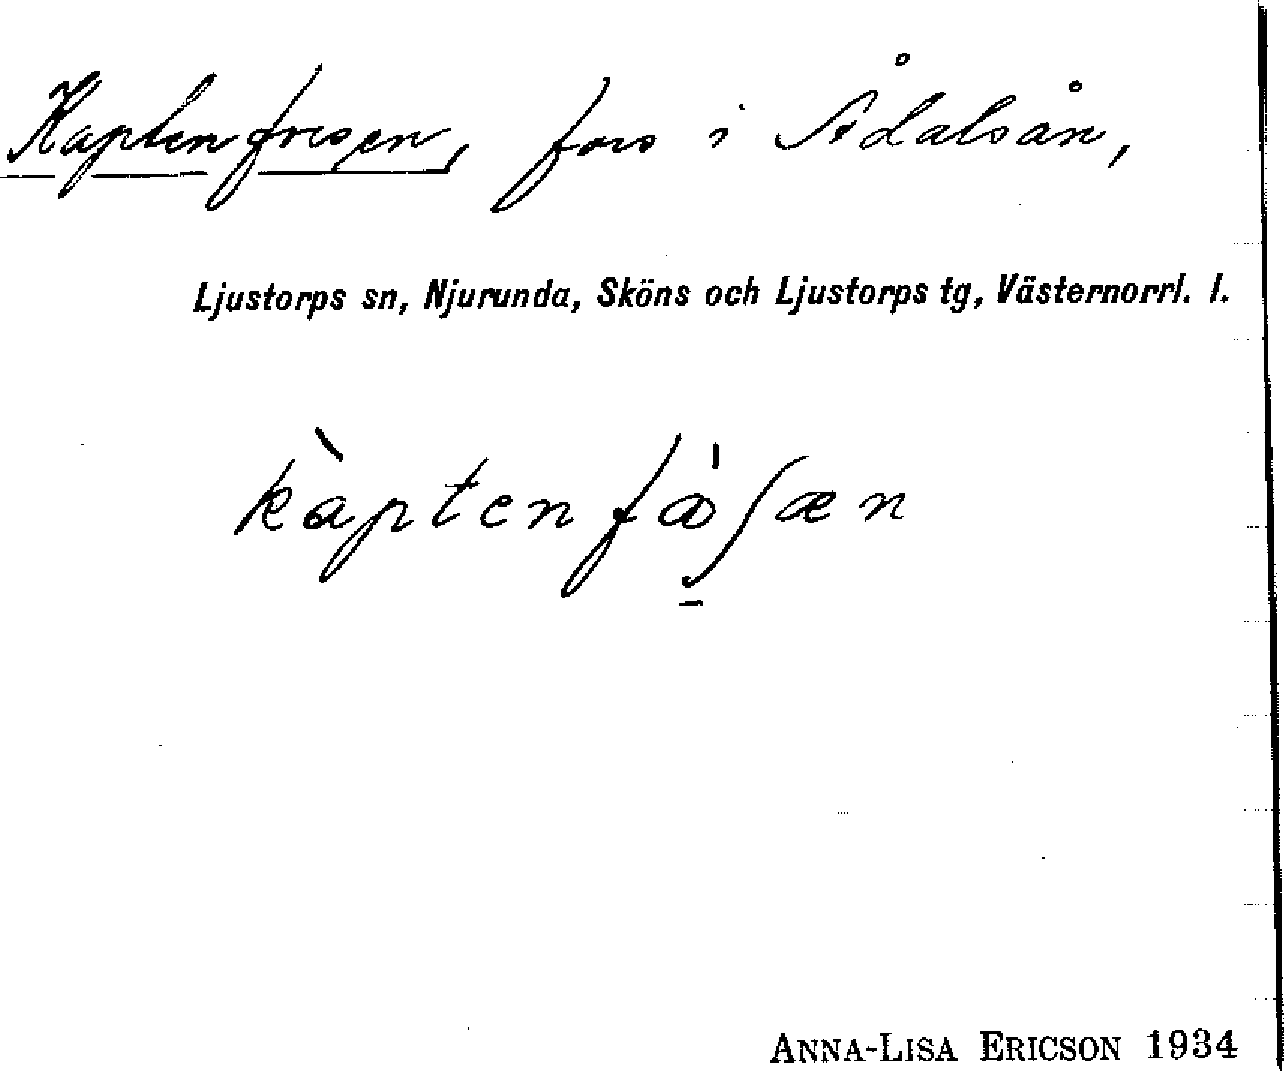 Kaptenforsen, fors i Ådalsån,
Ljustorps sn, Njurunda, Sköns och Ljustorps tg, Västernorrl. l.
ANNA-LISA ERICSON 1934